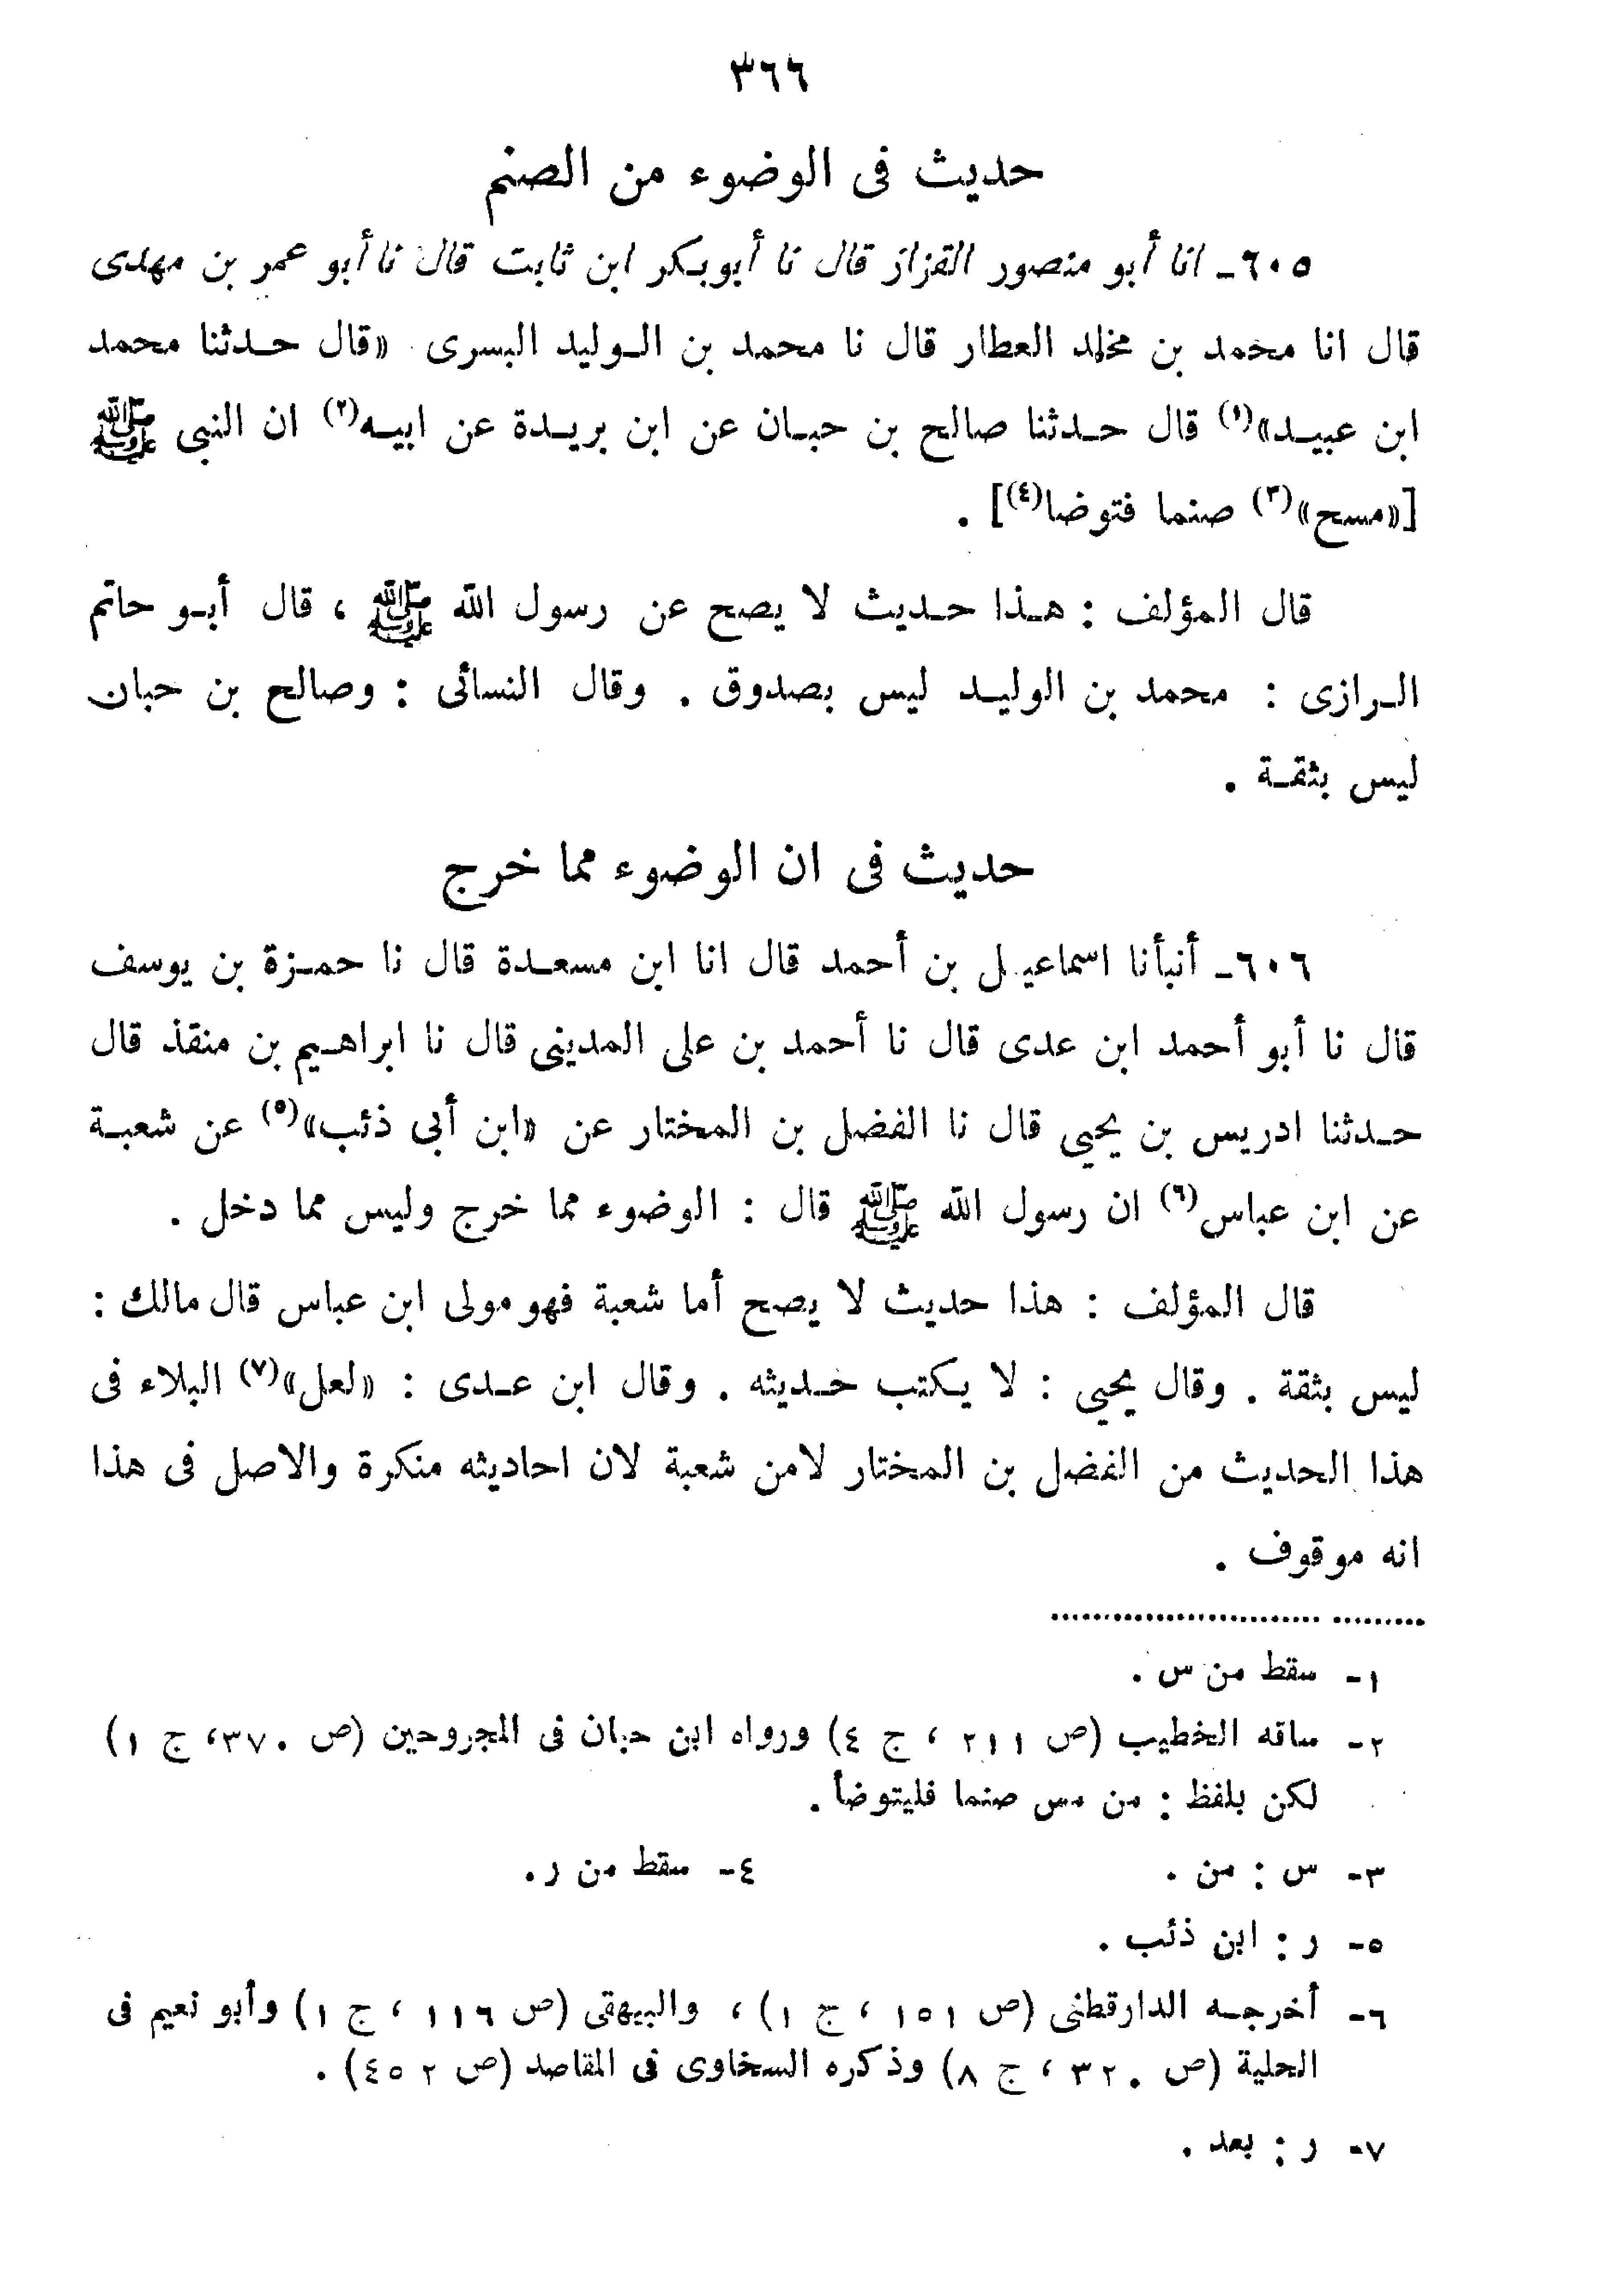 ٣٦٦
حديث فى الوضوء من الصنم
٦٠٥ـ انا أبو منصور القزاز قال نا أبوبكر ابن ثابت قال نا أبو عمر بن مهدى
قال انا محمد بن مخلد العطار قال نا محمد بن الوليد البسرى «قال حدثنا محمد
ابن عبيد»(١) قال حدثنا صالح بن حبان عن ابن بريدة عن ابيه(٢) ان النبى ﷺ
[«مسح»(٣) صنما فتوضا(٤)] .
قال المؤلف : هذا حديث لا يصح عن رسول الله ﷺ ، قال أبو حاتم
الرازى : محمد بن الوليد ليس بصدوق . وقال النسائى : وصالح بن حبان
ليس بثقة .
حديث فى ان الوضوء مما خرج
٦٠٦ـ أنبأنا اسماعيل بن أحمد قال انا ابن مسعدة قال نا حمزة بن يوسف
قال نا أبو أحمد ابن عدى قال نا أحمد بن على المدينى قال نا ابراهيم بن منقذ قال
حدثنا ادريس بن يحيى قال نا الفضل بن المختار عن «ابن أبى ذئب»(٥) عن شعبة
عن ابن عباس(٦) ان رسول الله ﷺ قال : الوضوء مما خرج وليس مما دخل .
قال المؤلف : هذا حديث لا يصح أما شعبة فهو مولى ابن عباس قال مالك :
ليس بثقة . وقال يحيى : لا يكتب حديثه . وقال ابن عدى : «لعل»(٧) البلاء فى
هذا الحديث من الفضل بن المختار لامن شعبة لان احاديثه منكرة والاصل فى هذا
انه موقوف .
١ـ سقط من س .
٢ـ ساقه الخطيب (ص ٢١١ ، ج ٤) ورواه ابن حبان فى المجروحين (ص ٣٧٠، ج ١)
لكن بلفظ : من مس صنما فليتوضأ .
٣ـ س : من . ٤ـ سقط من ر.
٥ـ ر : ابن ذئب .
٦ـ أخرجه الدارقطنى (ص ١٥١ ، ج ١) ، والبيهقى (ص ١١٦ ، ج ١) وأبو نعيم فى
الحلية (ص ٣٢٠ ، ج ٨) وذكره السخاوى فى المقاصد (ص ٤٥٢) .
٧ـ ر : بعد .